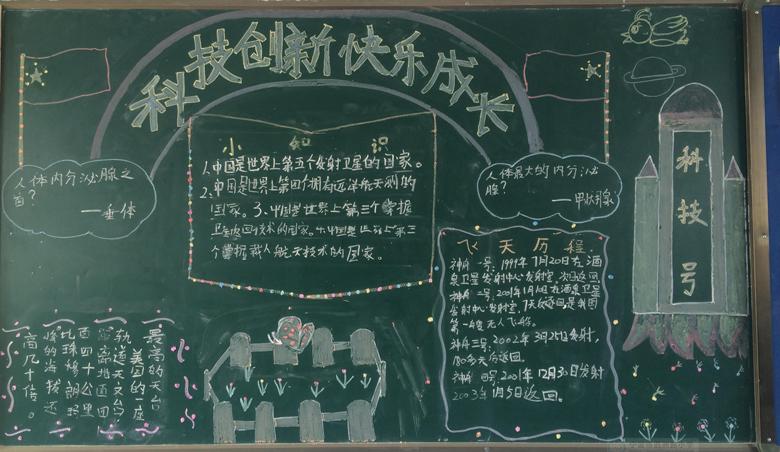 科技创新快乐成长
小知识
1.中国是世界上第五个发射卫星的国家。
2.中国是世界上第四个拥有远洋航天测的
国家。3.中国是世界上第三个掌握
卫星返回技术的国家。4.中国是世界上第三
个掌握载人航天技术的国家。
人体内分泌腺之
首?
——垂体
人体最大的内分泌
腺?
——甲状腺
科技号
飞天历程
神舟一号:1999年11月20日在酒
泉卫星发射中心发射室,次日返回
神舟二号:2001年1月10日在酒泉卫星
发射中心发射室,7天后返回是我国
第一艘无人飞船。
神舟三号:2002年3月25日发射,
180多天后返回。
神舟四号:2001年12月30日发射
2003年1月5日返回。
最高的天台
美国的一座
轨道天文台,
距离地面
四百四十公里
比珠穆朗玛
峰的海拔还
高几十倍。